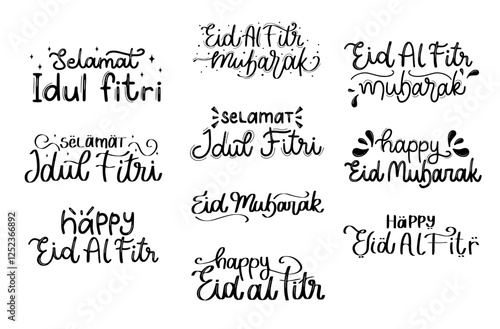 Selamat
Idul fitri
Eid Al Fitr
mubarak
Eid Al Fitr
mubarak
selamat
Idul Fitri
selamat
Idul Fitri
happy
Eid Mubarak
Eid Mubarak
happy
Eid Al Fitr
happy
Eid al fitr
Happy
Eid Al Fitr
Adobe Stock | #1252366892